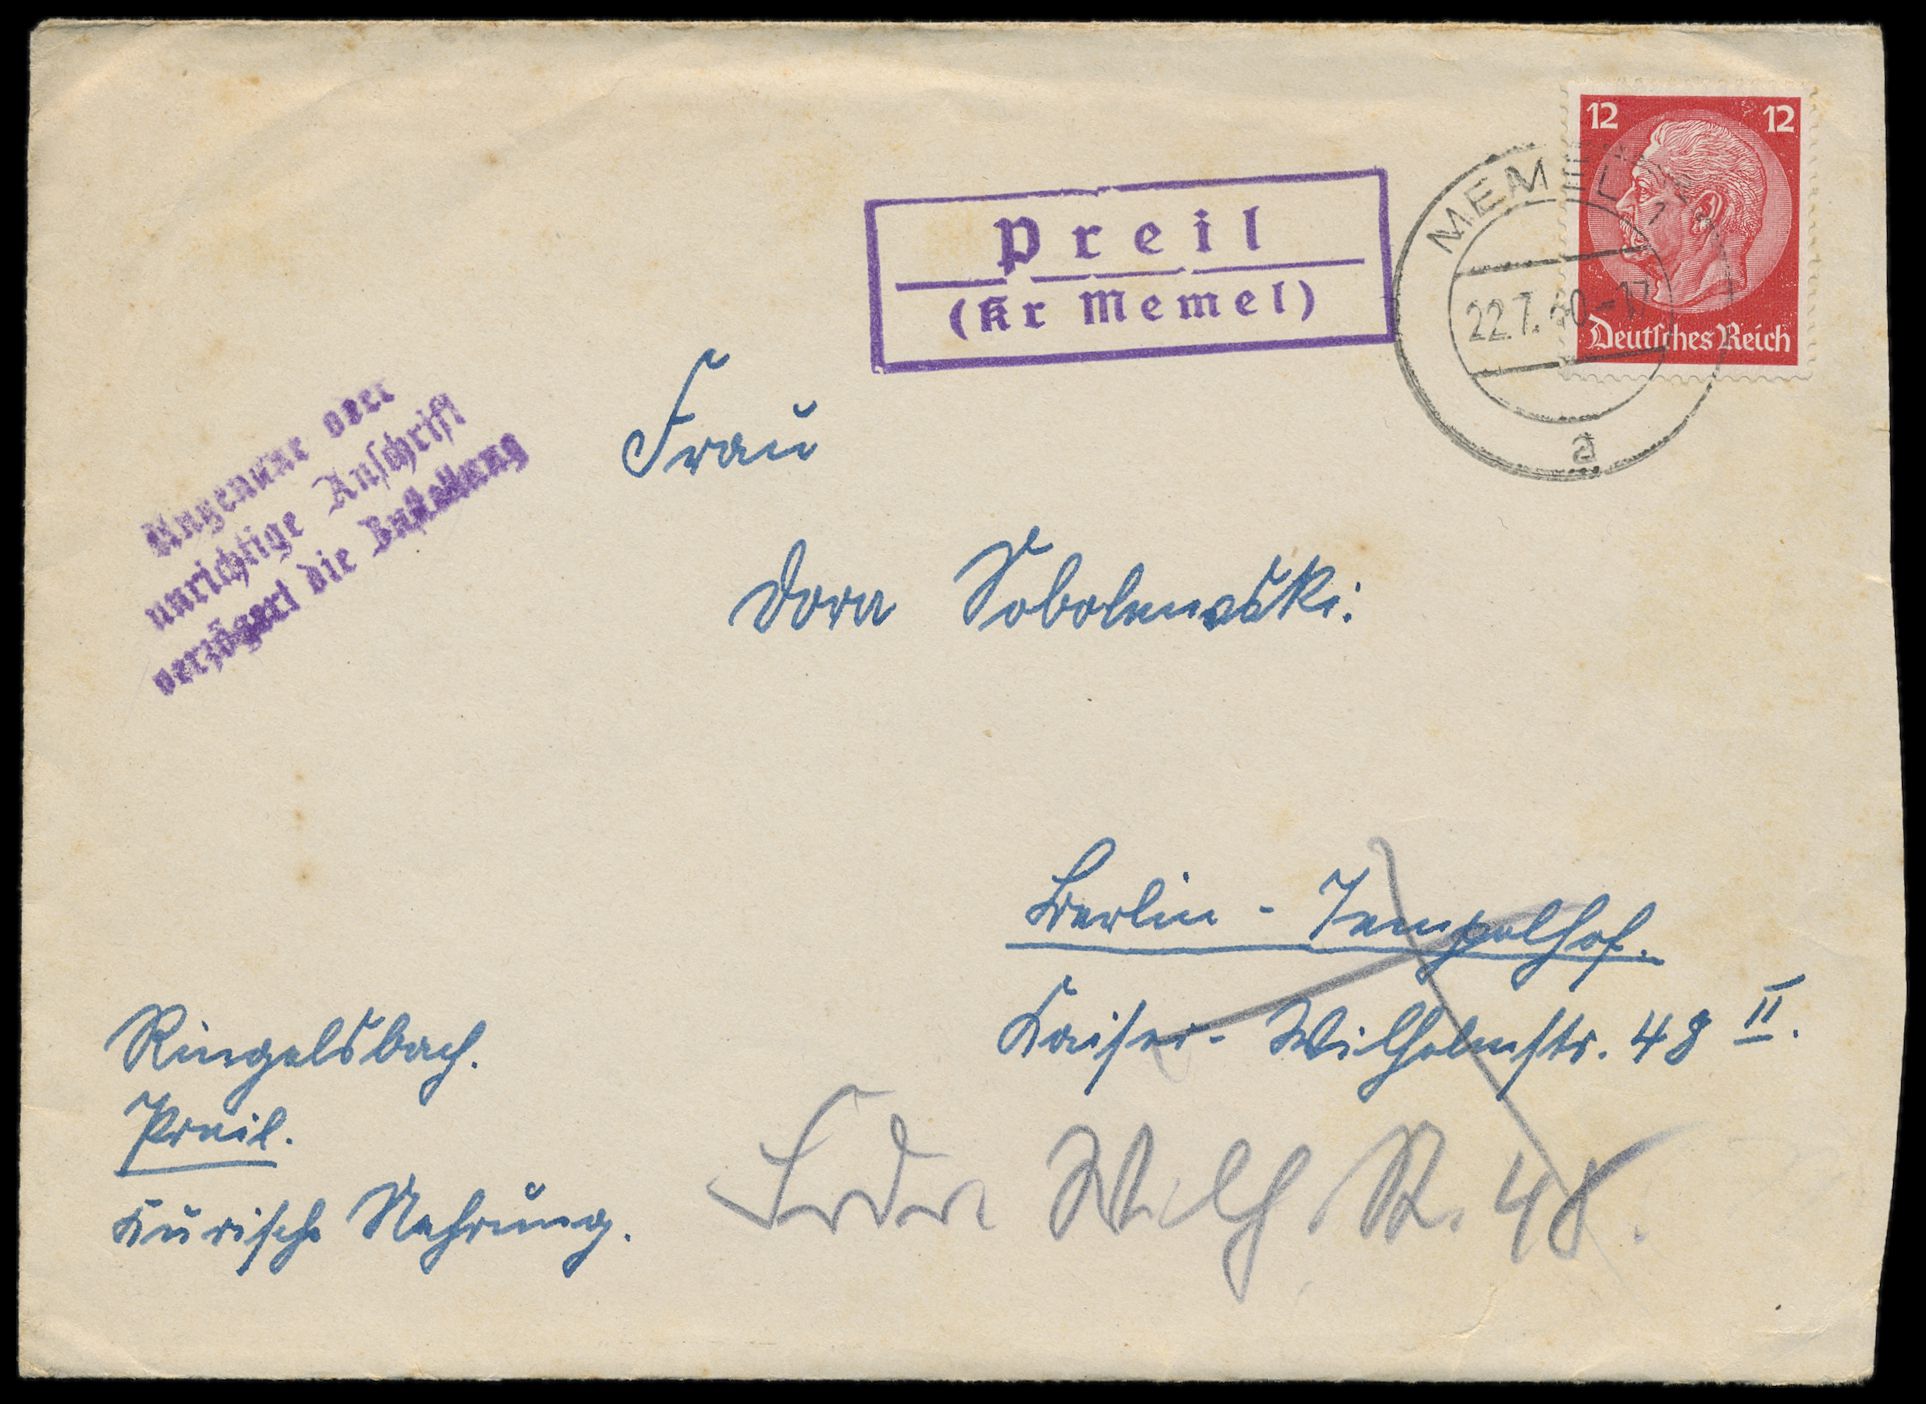 12 12
Deutsches Reich
MEMEL
22.7.40-17
a
Preil
(Kr Memel)
Ungenaue oder
unrichtige Anschrift
verzögert die Zustellung
Frau
Dora Sobolewski.
Berlin - Tempelhof.
Kaiser-Wilhelmstr. 48 II.
Ringelsbach.
Preil.
Kurische Nehrung.
Wilh. 48.